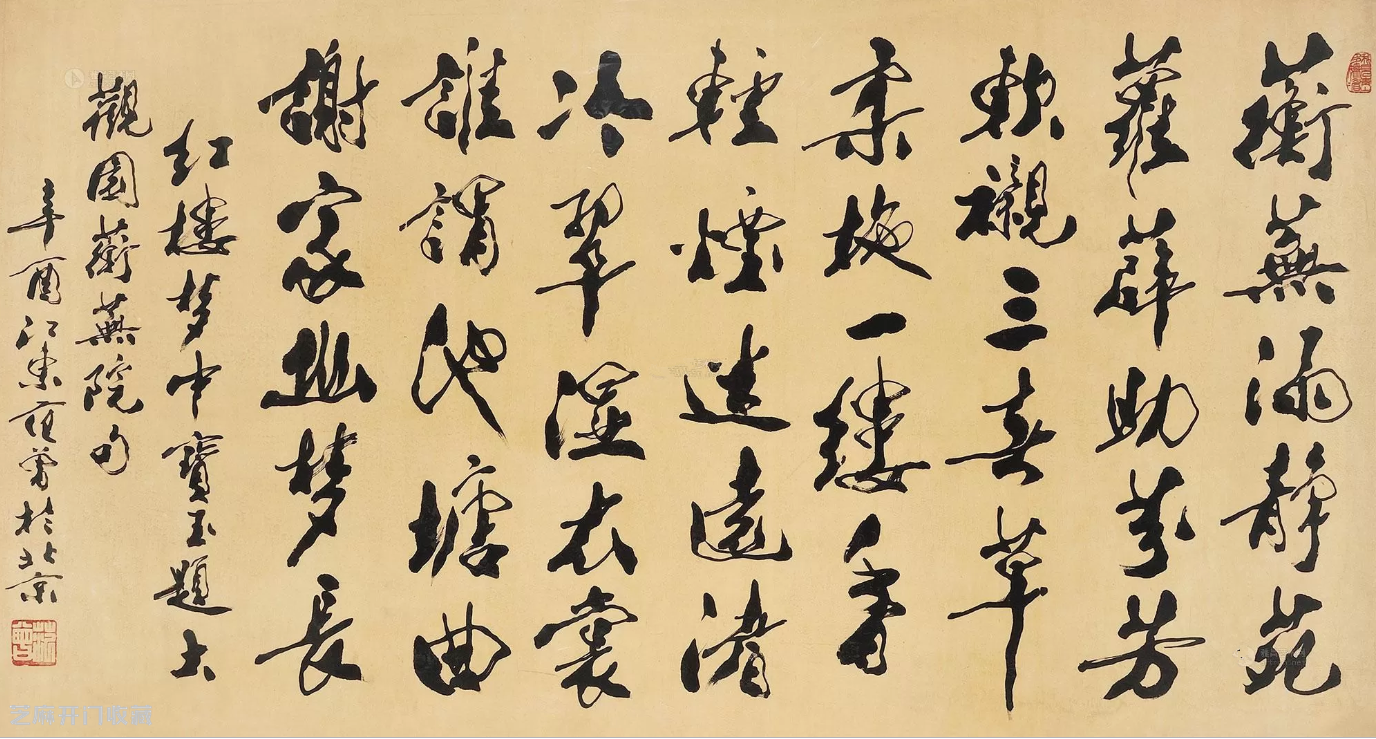 蘅蕪滿靜苑
蘿薜助芬芳
軟襯三春草
柔拖一縷香
輕煙迷遠渚
冷翠濕衣裳
誰謂池塘曲
謝家幽梦長
紅樓梦中寶玉題大
觀園蘅蕪院句
辛酉江東范曾於北京
范曾
芝麻开门收藏